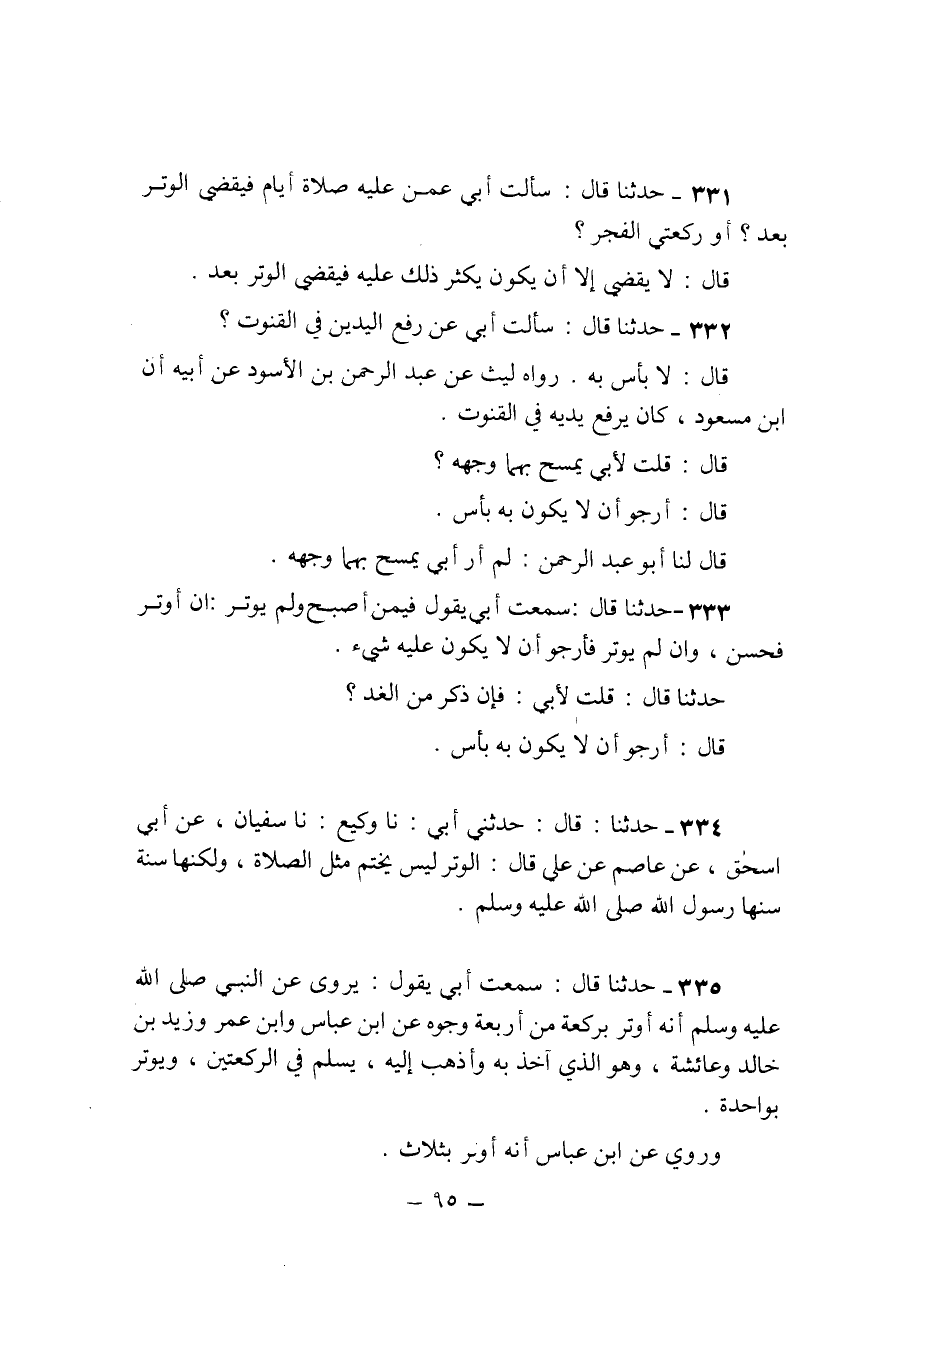 ٣٣١ ـ حدثنا قال : سألت أبي عمن عليه صلاة أيام فيقضي الوتر
بعد ؟ أو ركعتي الفجر ؟
قال : لا يقضي إلا أن يكون يكثر ذلك عليه فيقضي الوتر بعد .
٣٣٢ ـ حدثنا قال : سألت أبي عن رفع اليدين في القنوت ؟
قال : لا بأس به . رواه ليث عن عبد الرحمن بن الأسود عن أبيه أن
ابن مسعود ، كان يرفع يديه في القنوت .
قال : قلت لأبي يمسح بهما وجهه ؟
قال : أرجو أن لا يكون به بأس .
قال لنا أبو عبد الرحمن : لم أر أبي يمسح بهما وجهه .
٣٣٣ -حدثنا قال :سمعت أبي يقول فيمن أصبح ولم يوتر :ان أوتر
فحسن ، وان لم يوتر فأرجو أن لا يكون عليه شيء .
حدثنا قال : قلت لأبي : فإن ذكر من الغد ؟
قال : أرجو أن لا يكون به بأس .
٣٣٤ ـ حدثنا : قال : حدثني أبي : نا وكيع : نا سفيان ، عن أبي
اسحٰق ، عن عاصم عن علي قال : الوتر ليس يختم مثل الصلاة ، ولكنها سنة
سنها رسول الله صلى الله عليه وسلم .
٣٣٥ ـ حدثنا قال : سمعت أبي يقول : يروى عن النبي صلى الله
عليه وسلم أنه أوتر بركعة من أربعة وجوه عن ابن عباس وابن عمر وزيد بن
خالد وعائشة ، وهو الذي آخذ به وأذهب إليه ، يسلم في الركعتين ، ويوتر
بواحدة .
وروي عن ابن عباس أنه أوتر بثلاث .
ـ ٩٥ ـ